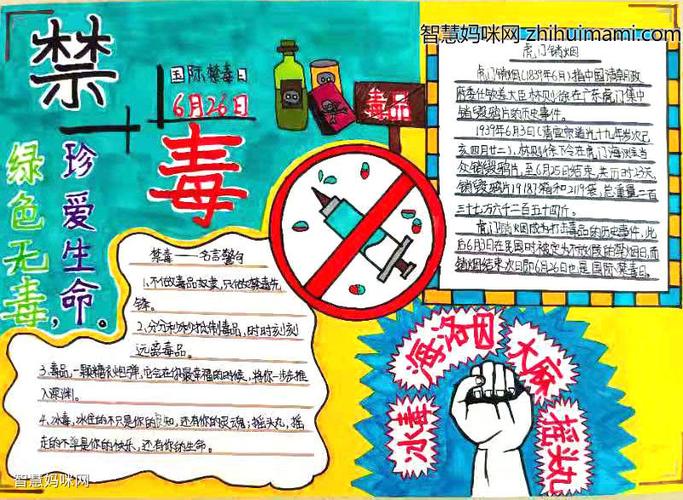 智慧妈咪网 zhihuimami.com
禁毒
国际禁毒日
6月26日
毒品
珍爱生命。
绿色无毒,
虎门销烟
虎门销烟(1839年6月)指中国清朝政
府委任钦差大臣林则徐在广东虎门集中
销毁鸦片的历史事件。
1939年6月3日(清宣宗道光十九年岁次己
亥四月廿二),林则徐下令在虎门海滩当
众销毁鸦片,至6月25日结束,共历时23天,
销毁鸦片19187箱和2119袋,总重量二百
三十七万六千二百五十四斤。
虎门销烟成为打击毒品的历史事件,此
后6月3日在民国时被定为不放假的禁烟日,而
销烟结束次日即6月26日也是国际禁毒日。
禁毒——名言警句
1、不做毒品奴隶,只做禁毒先
锋。
2、分分秒秒抵制毒品,时时刻刻
远离毒品。
3、毒品,一颗糖衣炮弹,它会在你最幸福的时候,将你一步步推
入深渊。
4、冰毒,冰住的不只是你的良知,还有你的灵魂;摇头丸,摇
走的不单是你的快乐,还有你的生命。
冰毒
海洛因
大麻
摇头丸
智慧妈咪网